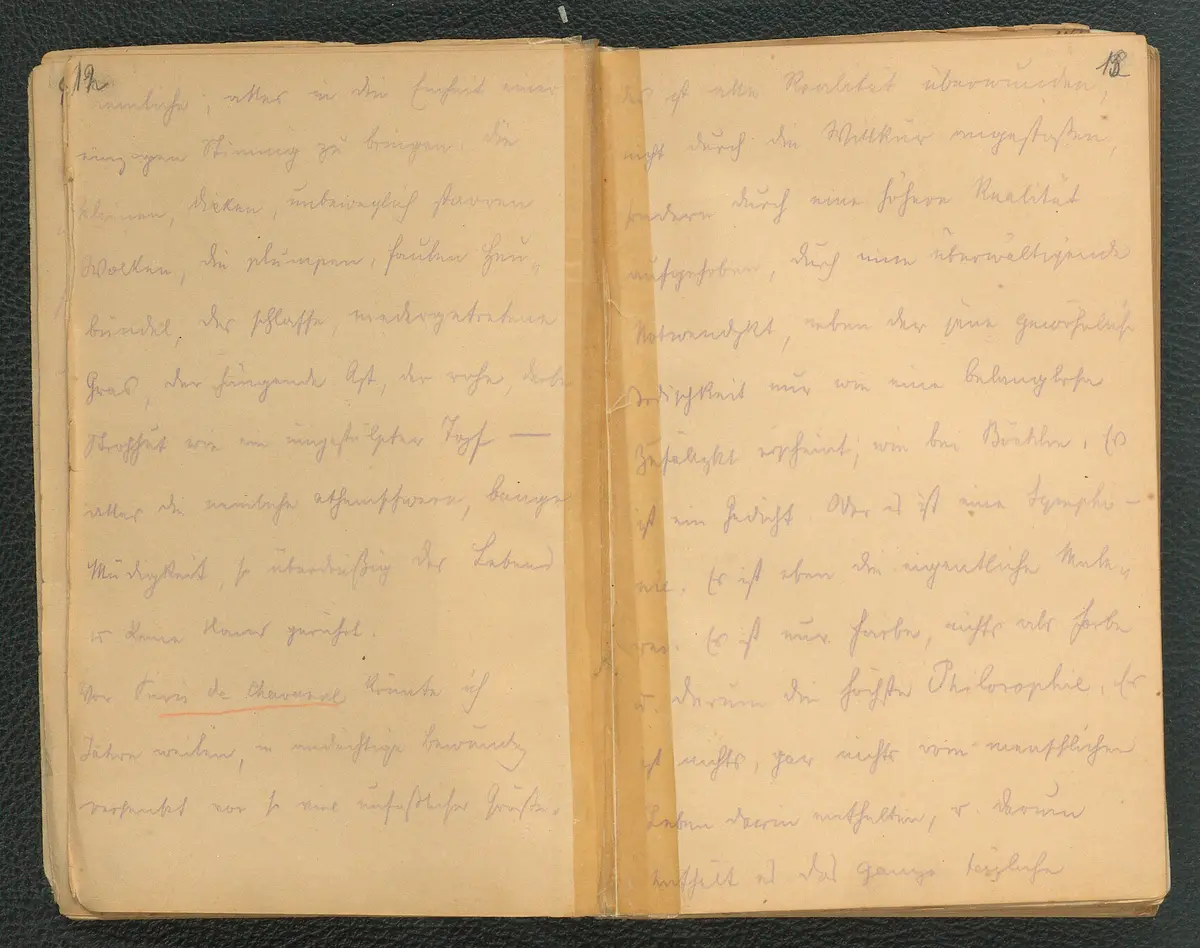 12
nämliche; alles in die Einheit einer
einzigen Stimmung zu bringen: die
kleinen, dicken, unbeweglich starren
Wolken, die plumpen, faulen Heu„
bündel, das schlaffe, niedergetretene
Gras, der hängende Ast, der rohe, derbe
Strohhut wie ein umgestülpter Topf —
alles die nämliche athemschwere, bange
Müdigkeit, so überdrüßig des Lebens
es keine Hand gerührt.
Vor Puvis de Chavannes könnte ich
Jahre weilen, in andächtige Bewundg
versenkt vor so viel unfaßlicher Größe.
13
das ist alle Realität überwunden,
nicht durch die Willkür angestoßen,
sondern durch eine höhere Realität
aufgehoben, durch eine überwältigende
Notwendgkt, neben der jene gewöhnliche
Irdischkeit nur wie eine belanglose
Zufälligkt erscheint; wie bei Böcklin. Es
ist ein Gedicht. Oder es ist eine Sympho–
nie. Es ist eben die eigentliche Male„
rei. Es ist nur Farbe, nichts als Farbe
u. darum die höchste Philosophie. Es
ist nichts, gar nichts vom menschlichen
Leben darin enthalten, u. darum
enthält es das ganze